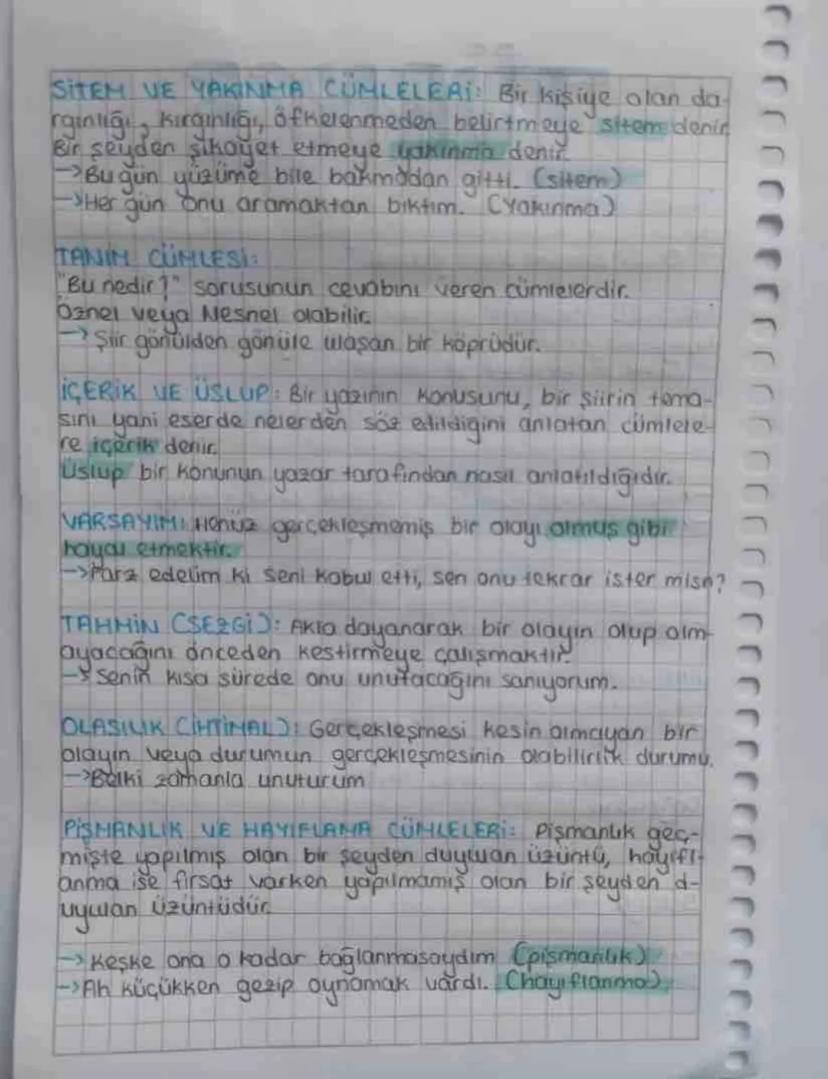 SİTEM VE YAKINMA CÜMLELERİ: Bir kişiye olan da-
rgınlığı, kırgınlığı, öfkelenmeden belirtmeye sitem denir
Bir şeyden şikayet etmeye yakınma denir.
→Bugün yüzüme bile bakmadan gitti. (sitem)
→Her gün onu aramaktan bıktım. (Yakınma)
TANIM CÜMLESİ:
"Bu nedir?" sorusunun cevabını veren cümlelerdir.
Öznel veya Nesnel olabilir.
→ Şiir gönülden gönüle ulaşan bir köprüdür.
İÇERİK VE ÜSLUP: Bir yazının konusunu, bir şiirin tema-
sını yani eserde nelerden söz edildiğini anlatan cümlele-
re içerik denir.
Üslup bir konunun yazar tarafından nasıl anlatıldığıdır.
VARSAYIM: Henüz gerçekleşmemiş bir olayı olmuş gibi
hayal etmektir.
→Farz edelim ki seni kabul etti, sen onu tekrar ister misn?
TAHMİN (SEZGİ): Akla dayanarak bir olayın olup olm-
ayacağını önceden kestirmeye çalışmaktır.
→ Senin kısa sürede onu unutacağını sanıyorum.
OLASILIK (İHTİMAL): Gerçekleşmesi kesin olmayan bir
olayın veya durumun gerçekleşmesinin olabilirlik durumu.
→Belki zamanla unuturum
PİŞMANLIK VE HAYIFLANMA CÜMLELERİ: Pişmanlık geç-
mişte yapılmış olan bir şeyden duyulan üzüntü, hayıfl-
anma ise fırsat varken yapılmamış olan bir şeyden d-
uyulan üzüntüdür.
→ Keşke ona o kadar bağlanmasaydım (pişmanlık)
→Ah küçükken gezip oynamak vardı. (hayıflanma)